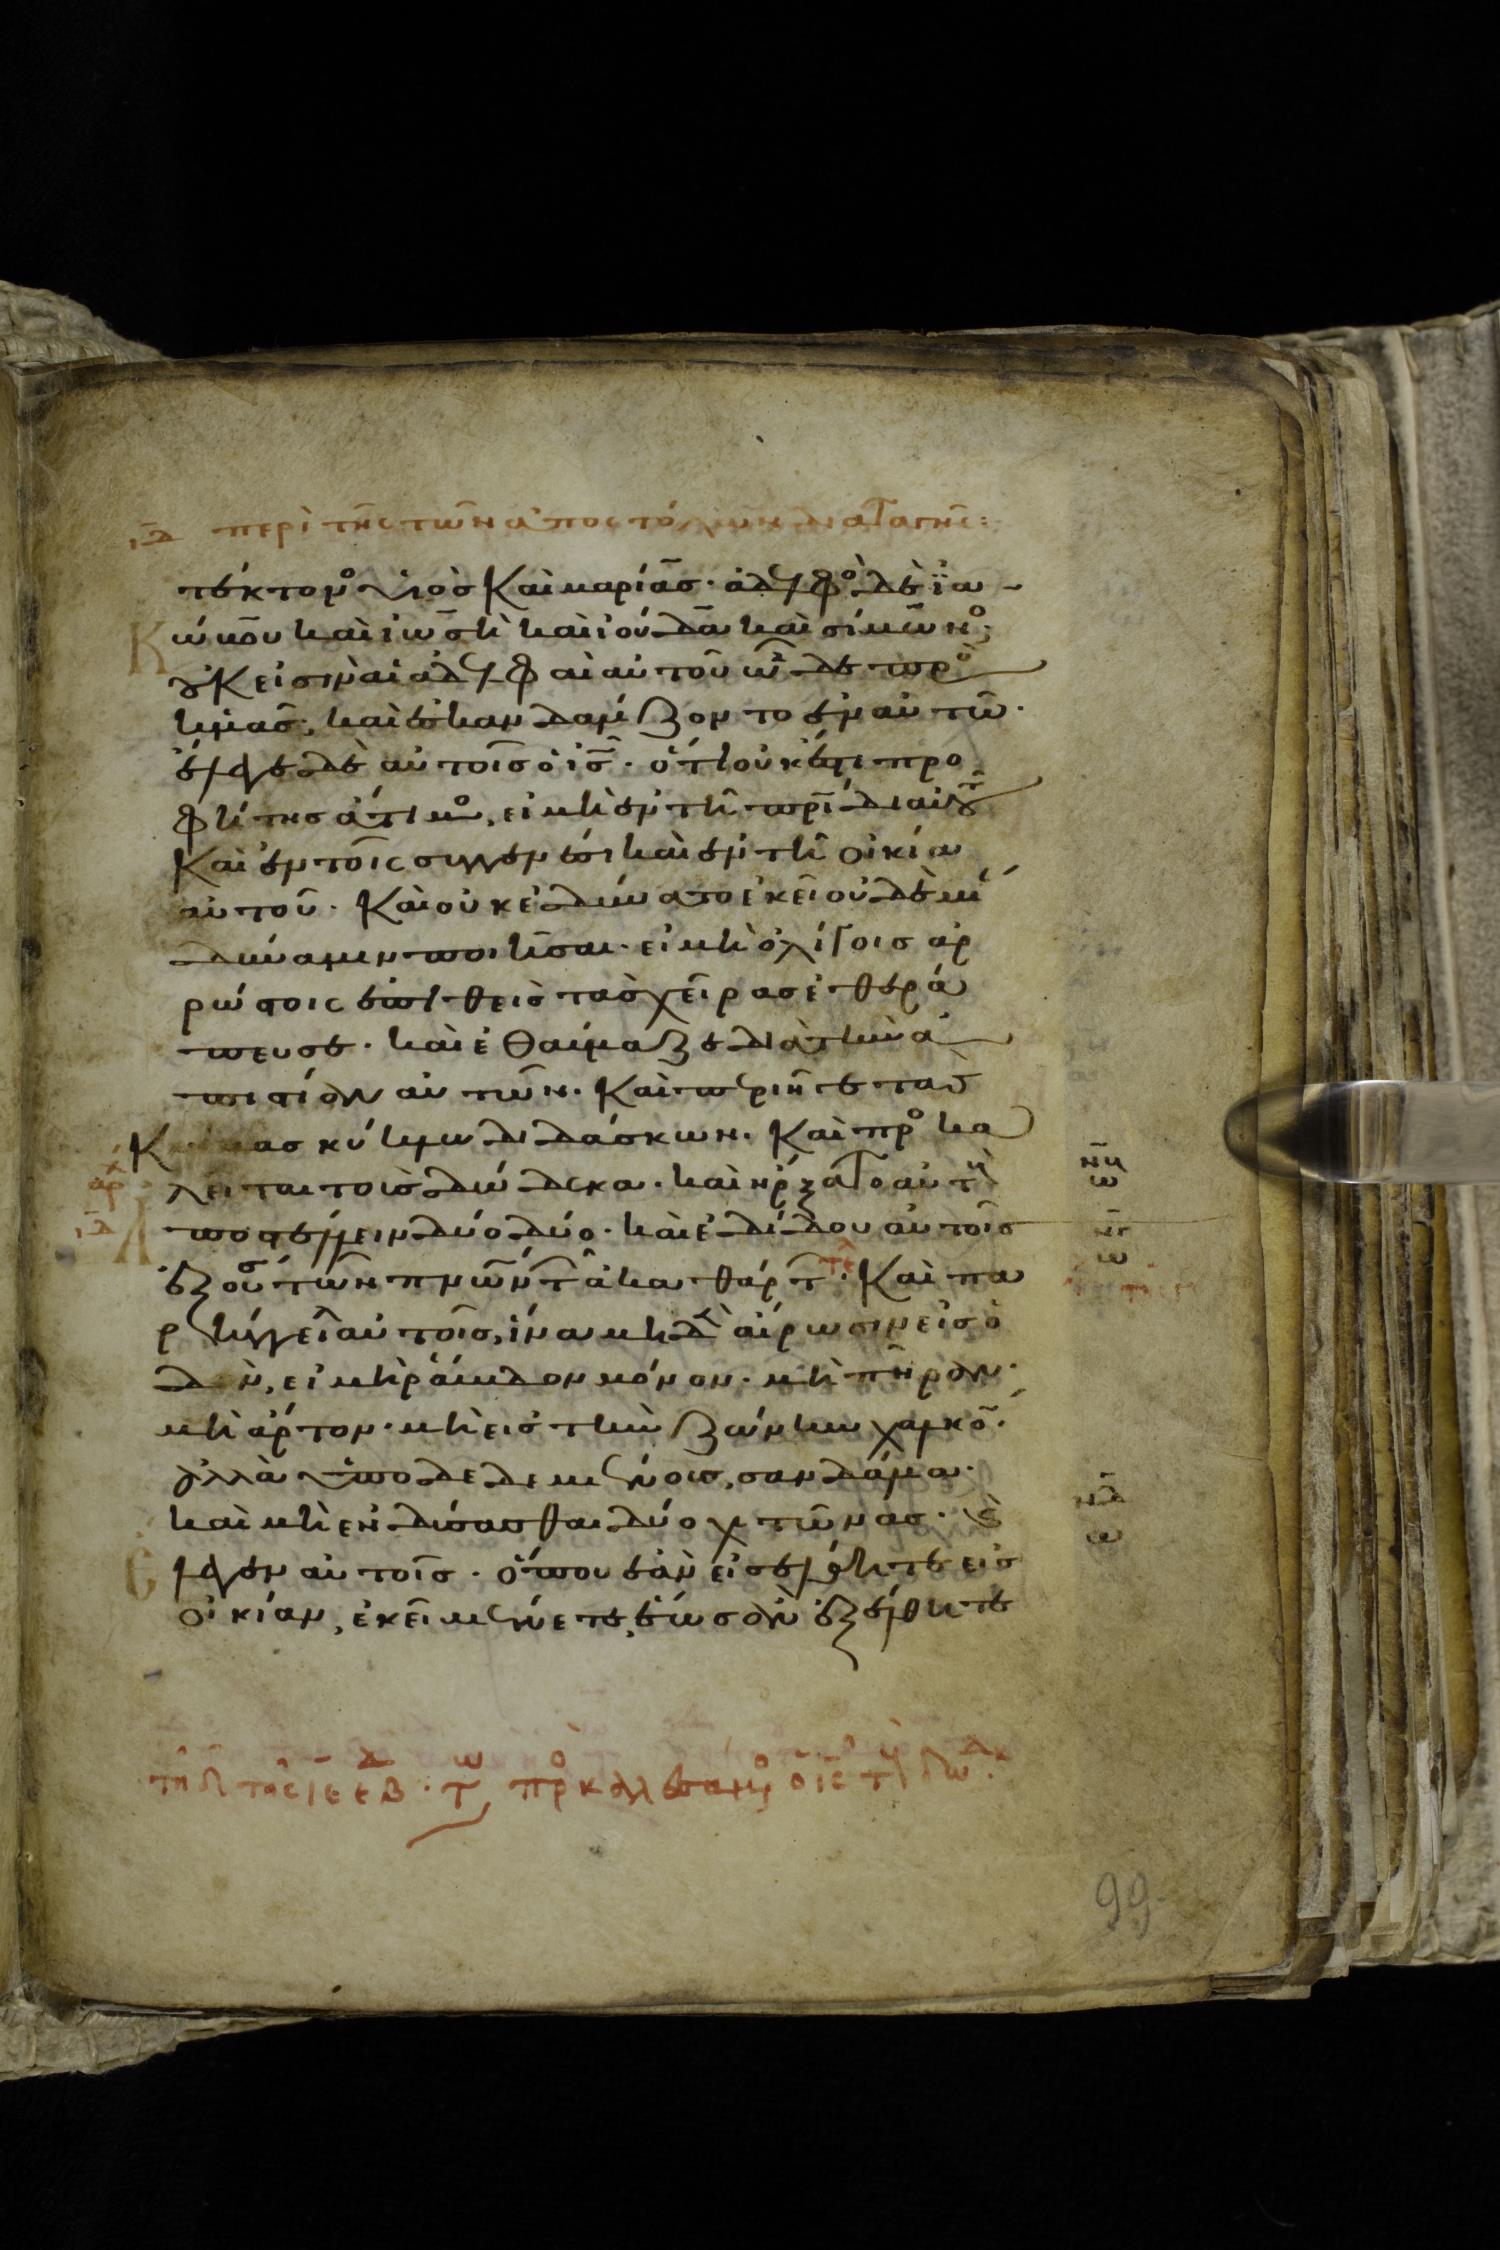 ιδ περὶ τῆς τῶν ἀποστόλων διαταγῆς:
τέκτονο υἱὸς Καὶ μαρίας· ἀδελφο δὲ ϊα
κώβου καὶ ἰωσὴ καὶ ἰούδα καὶ σίμωνο;
οὐκ εἰσὶν αἱ ἀδελφαὶ αὐτοῦ ὧδε προ
ἡμᾶς; καὶ ἐσκανδαλίζοντο ἐν αὐτῶ·
ἔλεγε δὲ αὐτοῖς ὁ ις· ὅτι οὐκ ἔστι προ
φήτης ἄτιμο, εἰ μὴ ἐν τῆ πρίδι αὐτ
Καὶ ἐν τοῖς συγγενέσι καὶ ἐν τῆ οἰκία
αὐτοῦ· Καὶ οὐκ ἐδύνατο ἐκεῖ οὐδὲ μί
δύναμιν ποιῆσαι· εἰ μὴ ὀλίγοις ἀρ
ρώστοις ἐπιθεὶς τὰς χεῖρας ἐθερά
πευσε· καὶ ἐθαύμαζε διὰ τὴν ἀ
πιστίαν αὐτῶν· Καὶ περιῆγε τὰς
Κώμας κύκλω διδάσκων· Καὶ προ κα
λεῖται τοὺς δώδεκα· καὶ ἤρξατο αὐτ
ἀποστέλλειν δύο δύο· καὶ ἐδίδου αὐτοῖς
ἐξουσ τῶν πνων τ ἀκαθάρτ· Καὶ πα
ρήγγειλ αὐτοῖς, ἵνα μηδὲ αἴρωσιν εἰς ὁ
δὸν, εἰ μὴ ῥάβδον μόνον· μὴ πήραν·
μὴ ἄρτον· μὴ εἰς τὴν ζώνην χαλκό·
ἀλλὰ ὑποδεδεμένους, σανδάλια·
καὶ μὴ ἐνδύσασθαι δύο χιτῶνας· ἔ
λεγεν αὐτοῖς· ὅπου ἐὰν εἰσέλθητε εἰς
οἰκίαν, ἐκεῖ μένετε, ἕως ἂν ἐξέλθητε
99